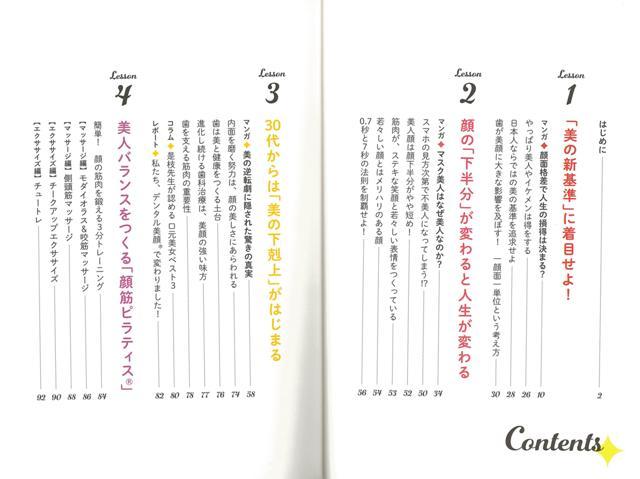 Contents
はじめに 2
Lesson 1
「美の新基準」に着目せよ!
マンガ◆顔面格差で人生の損得は決まる? 10
やっぱり美人やイケメンは得をする 26
日本人ならではの美の基準を追求せよ 28
歯が美顔に大きな影響を及ぼす! 一顔面一単位という考え方 30
Lesson 2
顔の「下半分」が変わると人生が変わる
マンガ◆マスク美人はなぜ美人なのか? 34
スマホの見方次第で不美人になってしまう!? 50
美人顔は顔下半分がやや短め! 52
筋肉が、ステキな笑顔と若々しい表情をつくっている 53
若々しい顔とはメリハリのある顔 54
0.7秒と7秒の法則を制覇せよ! 56
Lesson 3
30代からは「美の下剋上」がはじまる
マンガ◆美の逆転劇に隠された驚きの真実 58
内面を磨く努力は、顔の美しさにあらわれる 74
歯は美と健康をつくる土台 76
進化し続ける歯科治療は、美顔の強い味方 77
歯を支える筋肉の重要性 78
コラム◆是枝先生が認める 口元美女ベスト3 80
レポート◆私たち、デンタル美顔®で変わりました! 82
Lesson 4
美人バランスをつくる「顔筋ピラティス®」
簡単! 顔の筋肉を鍛える3分トレーニング 84
【マッサージ編】モダイオラス&咬筋マッサージ 86
【マッサージ編】側頭筋マッサージ 88
【エクササイズ編】チークアップエクササイズ 90
【エクササイズ編】チュートレ 92